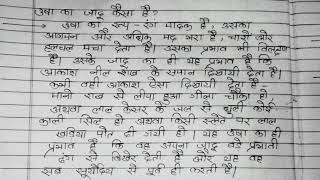 उषा का जादू कैसा है?
उषा का रूप-रंग मादक है, उसका
आगमन और अधिक मद भरा है, चारों ओर
हलचल मचा देता है। उसका प्रभाव भी विलक्षण
है। उसके जादू का ही यह प्रभाव है कि
आकाश नील शंख के समान दिखायी देता है।
कभी वही आकाश ऐसा दिखायी देता है
मानो राख से लीपा हुआ गीला चौका हो
अथवा लाल केसर के जल से धुली कोई
काली सिल हो अथवा किसी स्लेट पर लाल
खड़िया पोत दी गयी हो। यह उषा का ही
प्रभाव है कि वह अपना जादू बड़े प्रभावी
ढंग से बिखेर देती है और यह वह
सब सूर्योदय से पूर्व ही करती है।